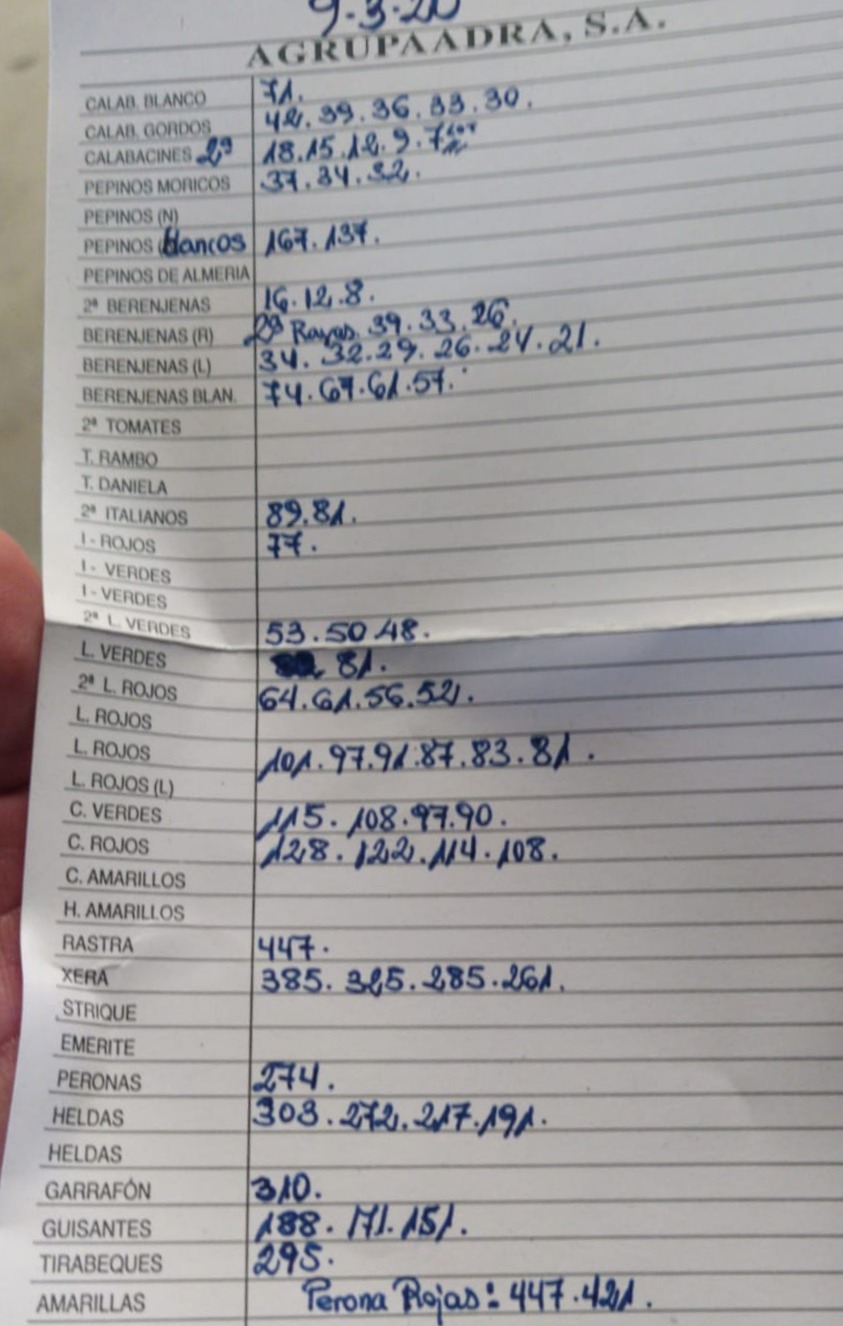 9-3-20
AGRUPAADRA, S.A.
CALAB. BLANCO 71.
CALAB. GORDOS 42.39.36.33.30.
CALABACINES 2ª 18.15.12.9.7
PEPINOS MORICOS 37.34.32.
PEPINOS (N)
PEPINOS (blancos 167.137.
PEPINOS DE ALMERIA
2ª BERENJENAS 16.12.8.
BERENJENAS (R) 2ª Rayas. 39.33.26.
BERENJENAS (L) 34.32.29.26.24.21.
BERENJENAS BLAN. 74.67.61.57.
2ª TOMATES
T. RAMBO
T. DANIELA
2ª ITALIANOS 89.81.
I - ROJOS 77.
I - VERDES
I - VERDES
2ª L. VERDES 53.50.48.
L. VERDES 81.
2ª L. ROJOS 64.61.56.52.
L. ROJOS
L. ROJOS 101.97.91.87.83.81.
L. ROJOS (L)
C. VERDES 115.108.97.90.
C. ROJOS 128.122.114.108.
C. AMARILLOS
H. AMARILLOS
RASTRA 447.
XERA 385.325.285.261.
STRIQUE
EMERITE
PERONAS 274.
HELDAS 303.272.217.191.
HELDAS
GARRAFÓN 310.
GUISANTES 188.171.151.
TIRABEQUES 295.
AMARILLAS Perona Rojas: 447.421.